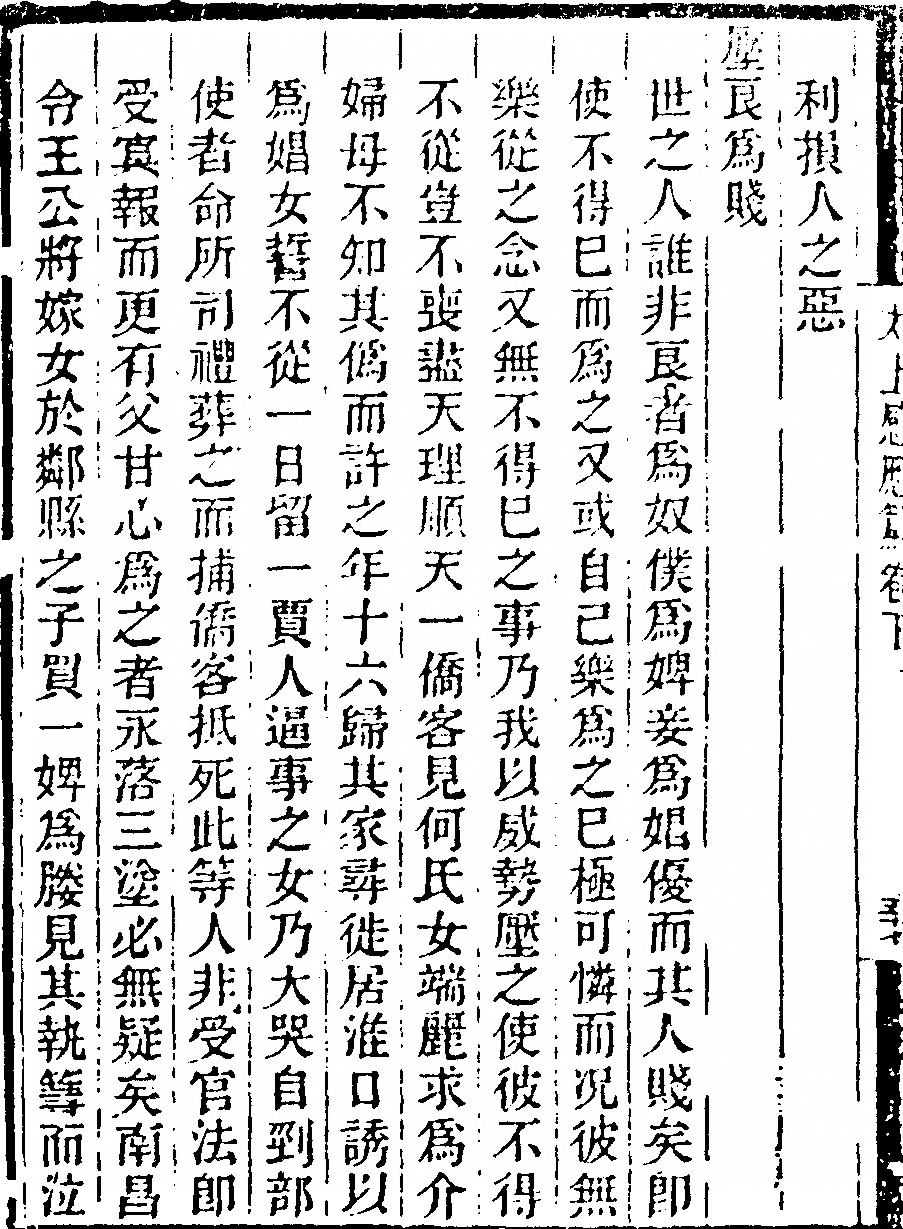 利損人之惡
壓良爲賤
世之人誰非良者爲奴僕爲婢妾爲娼優而其人賤矣卽
使不得已而爲之又或自己樂爲之已極可憐而况彼無
樂從之念又無不得已之事乃我以威勢壓之使彼不得
不從豈不喪盡天理順天一僑客見何氏女端麗求爲介
婦母不知其僞而許之年十六歸其家尋徙居淮口誘以
爲娼女誓不從一日留一賈人逼事之女乃大哭自剄部
使者命所司禮葬之而捕僑客抵死此等人非受官法卽
受冥報而更有父甘心爲之者永落三塗必無疑矣南昌
令王公將嫁女於鄰縣之子買一婢爲媵見其執箒而泣
太上感應篇卷下